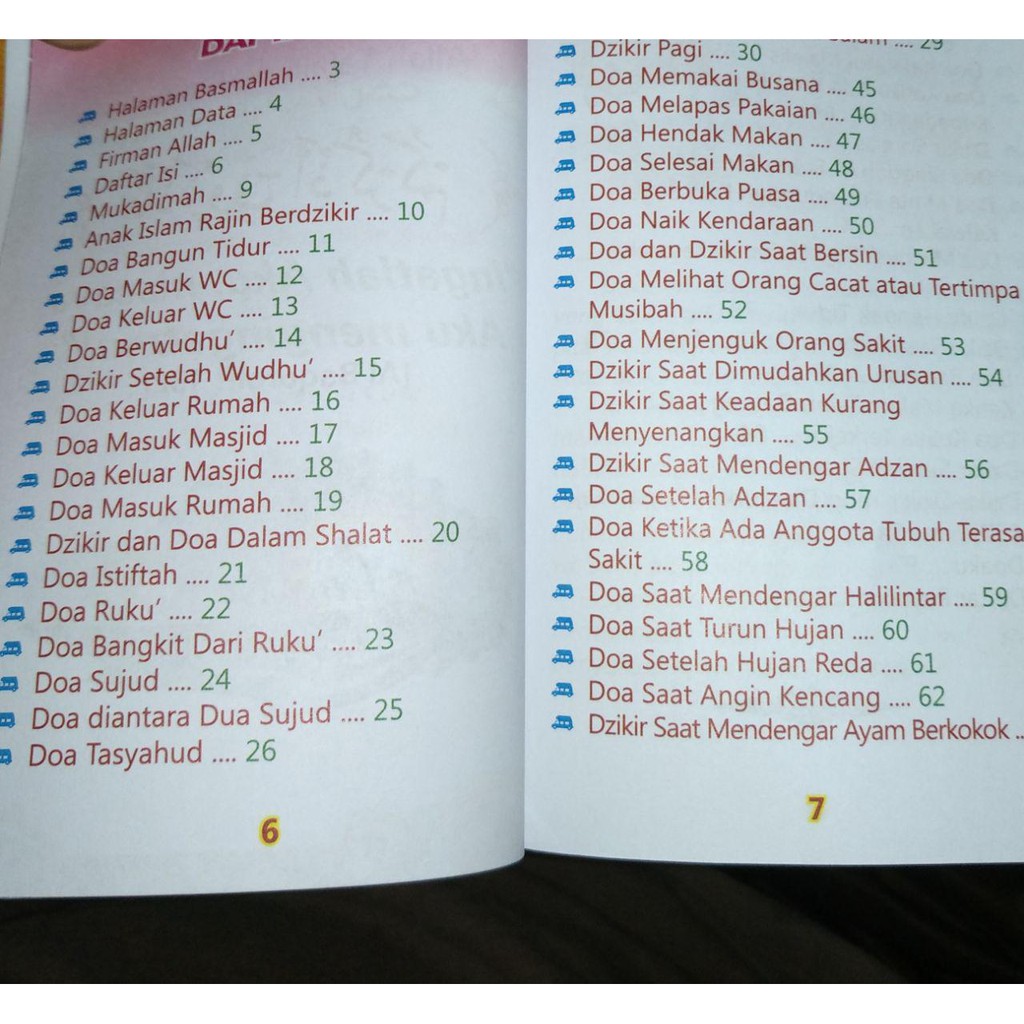 Halaman Basmallah .... 3
Halaman Data .... 4
Firman Allah .... 5
Daftar Isi .... 6
Mukadimah .... 9
Anak Islam Rajin Berdzikir .... 10
Doa Bangun Tidur .... 11
Doa Masuk WC .... 12
Doa Keluar WC .... 13
Doa Berwudhu’ .... 14
Dzikir Setelah Wudhu’ .... 15
Doa Keluar Rumah .... 16
Doa Masuk Masjid .... 17
Doa Keluar Masjid .... 18
Doa Masuk Rumah .... 19
Dzikir dan Doa Dalam Shalat .... 20
Doa Istiftah .... 21
Doa Ruku’ .... 22
Doa Bangkit Dari Ruku’ .... 23
Doa Sujud .... 24
Doa diantara Dua Sujud .... 25
Doa Tasyahud .... 26
6
.... 29
Dzikir Pagi .... 30
Doa Memakai Busana .... 45
Doa Melapas Pakaian .... 46
Doa Hendak Makan .... 47
Doa Selesai Makan .... 48
Doa Berbuka Puasa .... 49
Doa Naik Kendaraan .... 50
Doa dan Dzikir Saat Bersin .... 51
Doa Melihat Orang Cacat atau Tertimpa
Musibah .... 52
Doa Menjenguk Orang Sakit .... 53
Dzikir Saat Dimudahkan Urusan .... 54
Dzikir Saat Keadaan Kurang
Menyenangkan .... 55
Dzikir Saat Mendengar Adzan .... 56
Doa Setelah Adzan .... 57
Doa Ketika Ada Anggota Tubuh Terasa
Sakit .... 58
Doa Saat Mendengar Halilintar .... 59
Doa Saat Turun Hujan .... 60
Doa Setelah Hujan Reda .... 61
Doa Saat Angin Kencang .... 62
Dzikir Saat Mendengar Ayam Berkokok ..
7